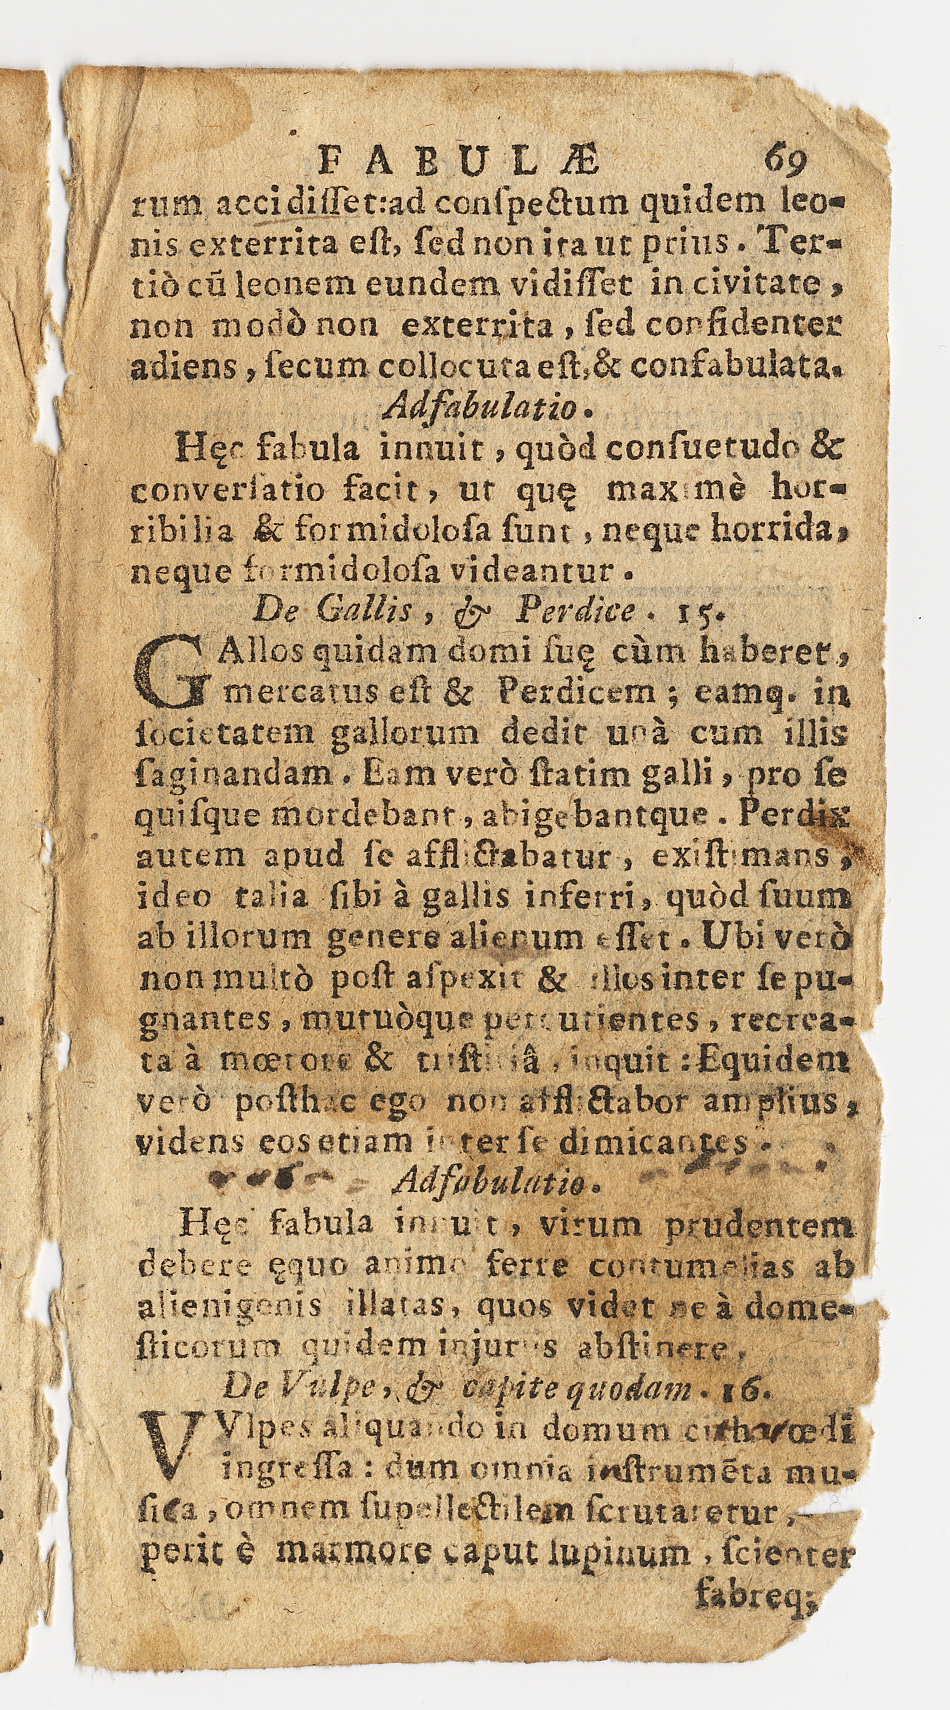 FABULÆ 69
rum accidiſſet:ad conſpectum quidem leo-
nis exterrita eſt, ſed non ita ut prius. Ter-
tiò cũ leonem eundem vidiſſet in civitate,
non modò non exterrita, ſed confidenter
adiens, ſecum collocuta eſt,& confabulata.
Adfabulatio.
Hęc fabula innuit, quòd conſuetudo &
converſatio facit, ut quę maximè hor-
ribilia & formidoloſa ſunt, neque horrida,
neque formidoloſa videantur.
De Gallis, & Perdice. 15.
GAllos quidam domi ſuę cùm haberet,
mercatus eſt & Perdicem; eamq. in
ſocietatem gallorum dedit unà cum illis
ſaginandam. Eam verò ſtatim galli, pro ſe
quiſque mordebant, abigebantque. Perdix
autem apud ſe afflictabatur, exiſtimans,
ideo talia ſibi à gallis inferri, quòd ſuum
ab illorum genere alienum eſſet. Ubi verò
non multò poſt aſpexit & illos inter ſe pu-
gnantes, mutuòque percutientes, recrea-
ta à mœrore & triſtitiâ, inquit: Equidem
verò poſthac ego non afflictabor amplius,
videns eos etiam inter ſe dimicantes.
Adfabulatio.
Hęc fabula innuit, virum prudentem
debere ęquo animo ferre contumelias ab
alienigenis illatas, quos videt ne à dome-
ſticorum quidem injuriis abſtinere.
De Vulpe, & capite quodam. 16.
VVlpes aliquando in domum citharœdi
ingreſſa: dum omnia inſtrumẽta mu-
ſica, omnem ſupellectilem ſcrutaretur,
perit è marmore caput lupinum, ſcienter
fabreq;